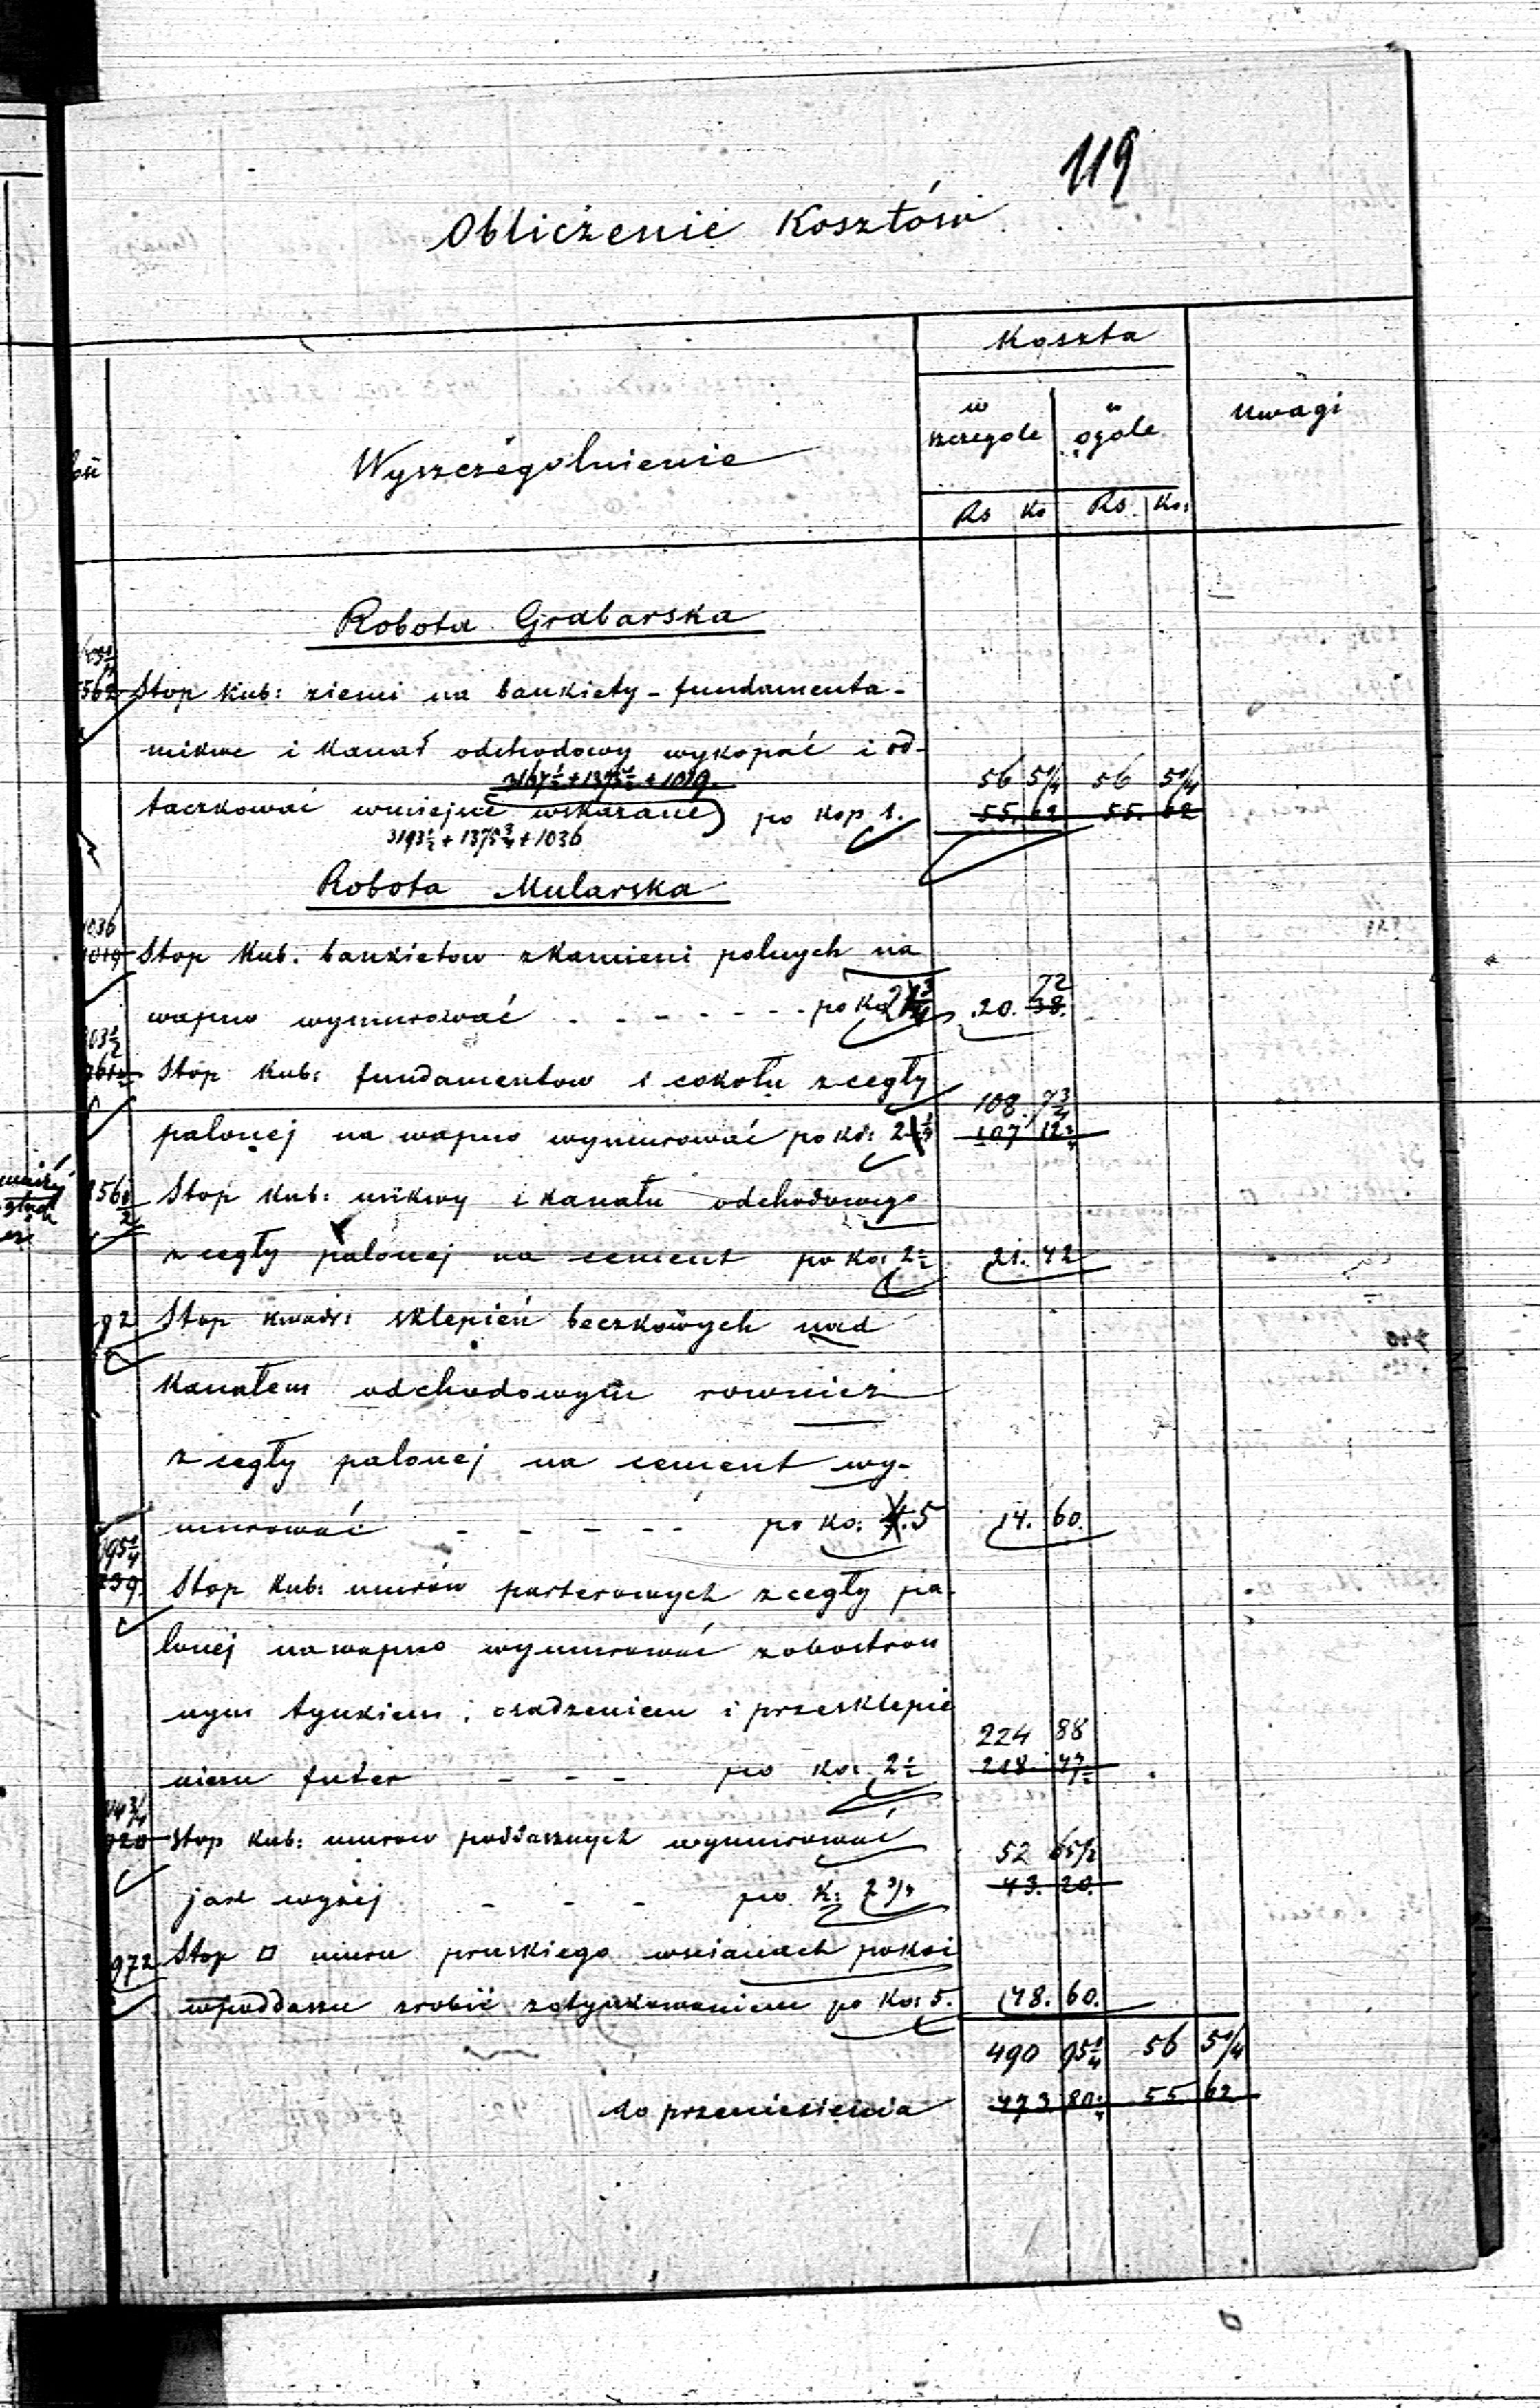 119
Obliczenie Kosztów
Koszta
w szczegole
w ogóle
Uwagi
Wyszczególnienie
Rs Ko Rs Ko:
Robota Grabarska
5562 Stop Kub: ziemi na bankiety - fundamenta -
mikwe i Kanał odchodowy wykopać i od-
3167½ + 1375½ + 1019. 56 5¼ 56 5¼
taczkować wmiejsce wskazane) po Kop 1. 55. 62 55. 62
3193½ + 1375¾ + 1036
Robota Mularska
1036
1019 Stop Kub. bankietow zkamieni polnych na
72
wapno wymurować - - - - - - - po Ko 2 20. 38.
Stop Kub: fundamentow i cokołu zcegły
108. 7¾
palonej na wapno wymurować po Ko: 2¼ 107 12¾
856½ Stop Kub: mikwy i kanału odchodowego
z cegły palonej na cement po Ko: 2½ 21. 42
92 Stop Kwadr: sklepień beczkowych nad
Kanałem odchodowym rownież
z cegły palonej na cement wy-
murować - - - - - po Ko: 5 14. 60.
95¼
739. Stop Kub: murów parterowych zcegły pa-
lonej nawapno wymurować zobostron
nym tynkiem; osadzeniem i przesklepie
224 88
niem futer - - - po Ko: 2½ 218 47½
43¾
920 Stop Kub: murow poddasznych wymurować
52 65½
jak wyżej - - - po K: 2¾ 43. 20.
972 Stop □ muru pruskiego wscianach pokoi
wpoddaszu zrobić zotynkowaniem po Ko: 5. 48. 60.
490 95¼ 56 5¼
do przeniesienia 473 80¼ 55. 62